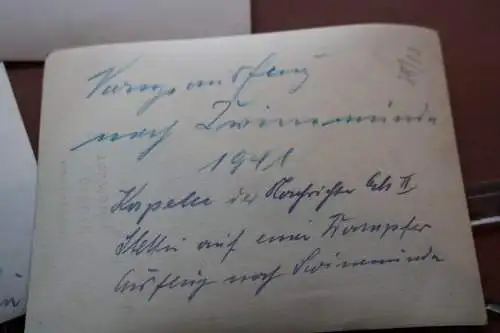 ausflug
nach Swinemünde
1941
Kapelle der Nachrichten Abt II
Stettin auf einer Dampfer
Ausflug nach Swinemünde